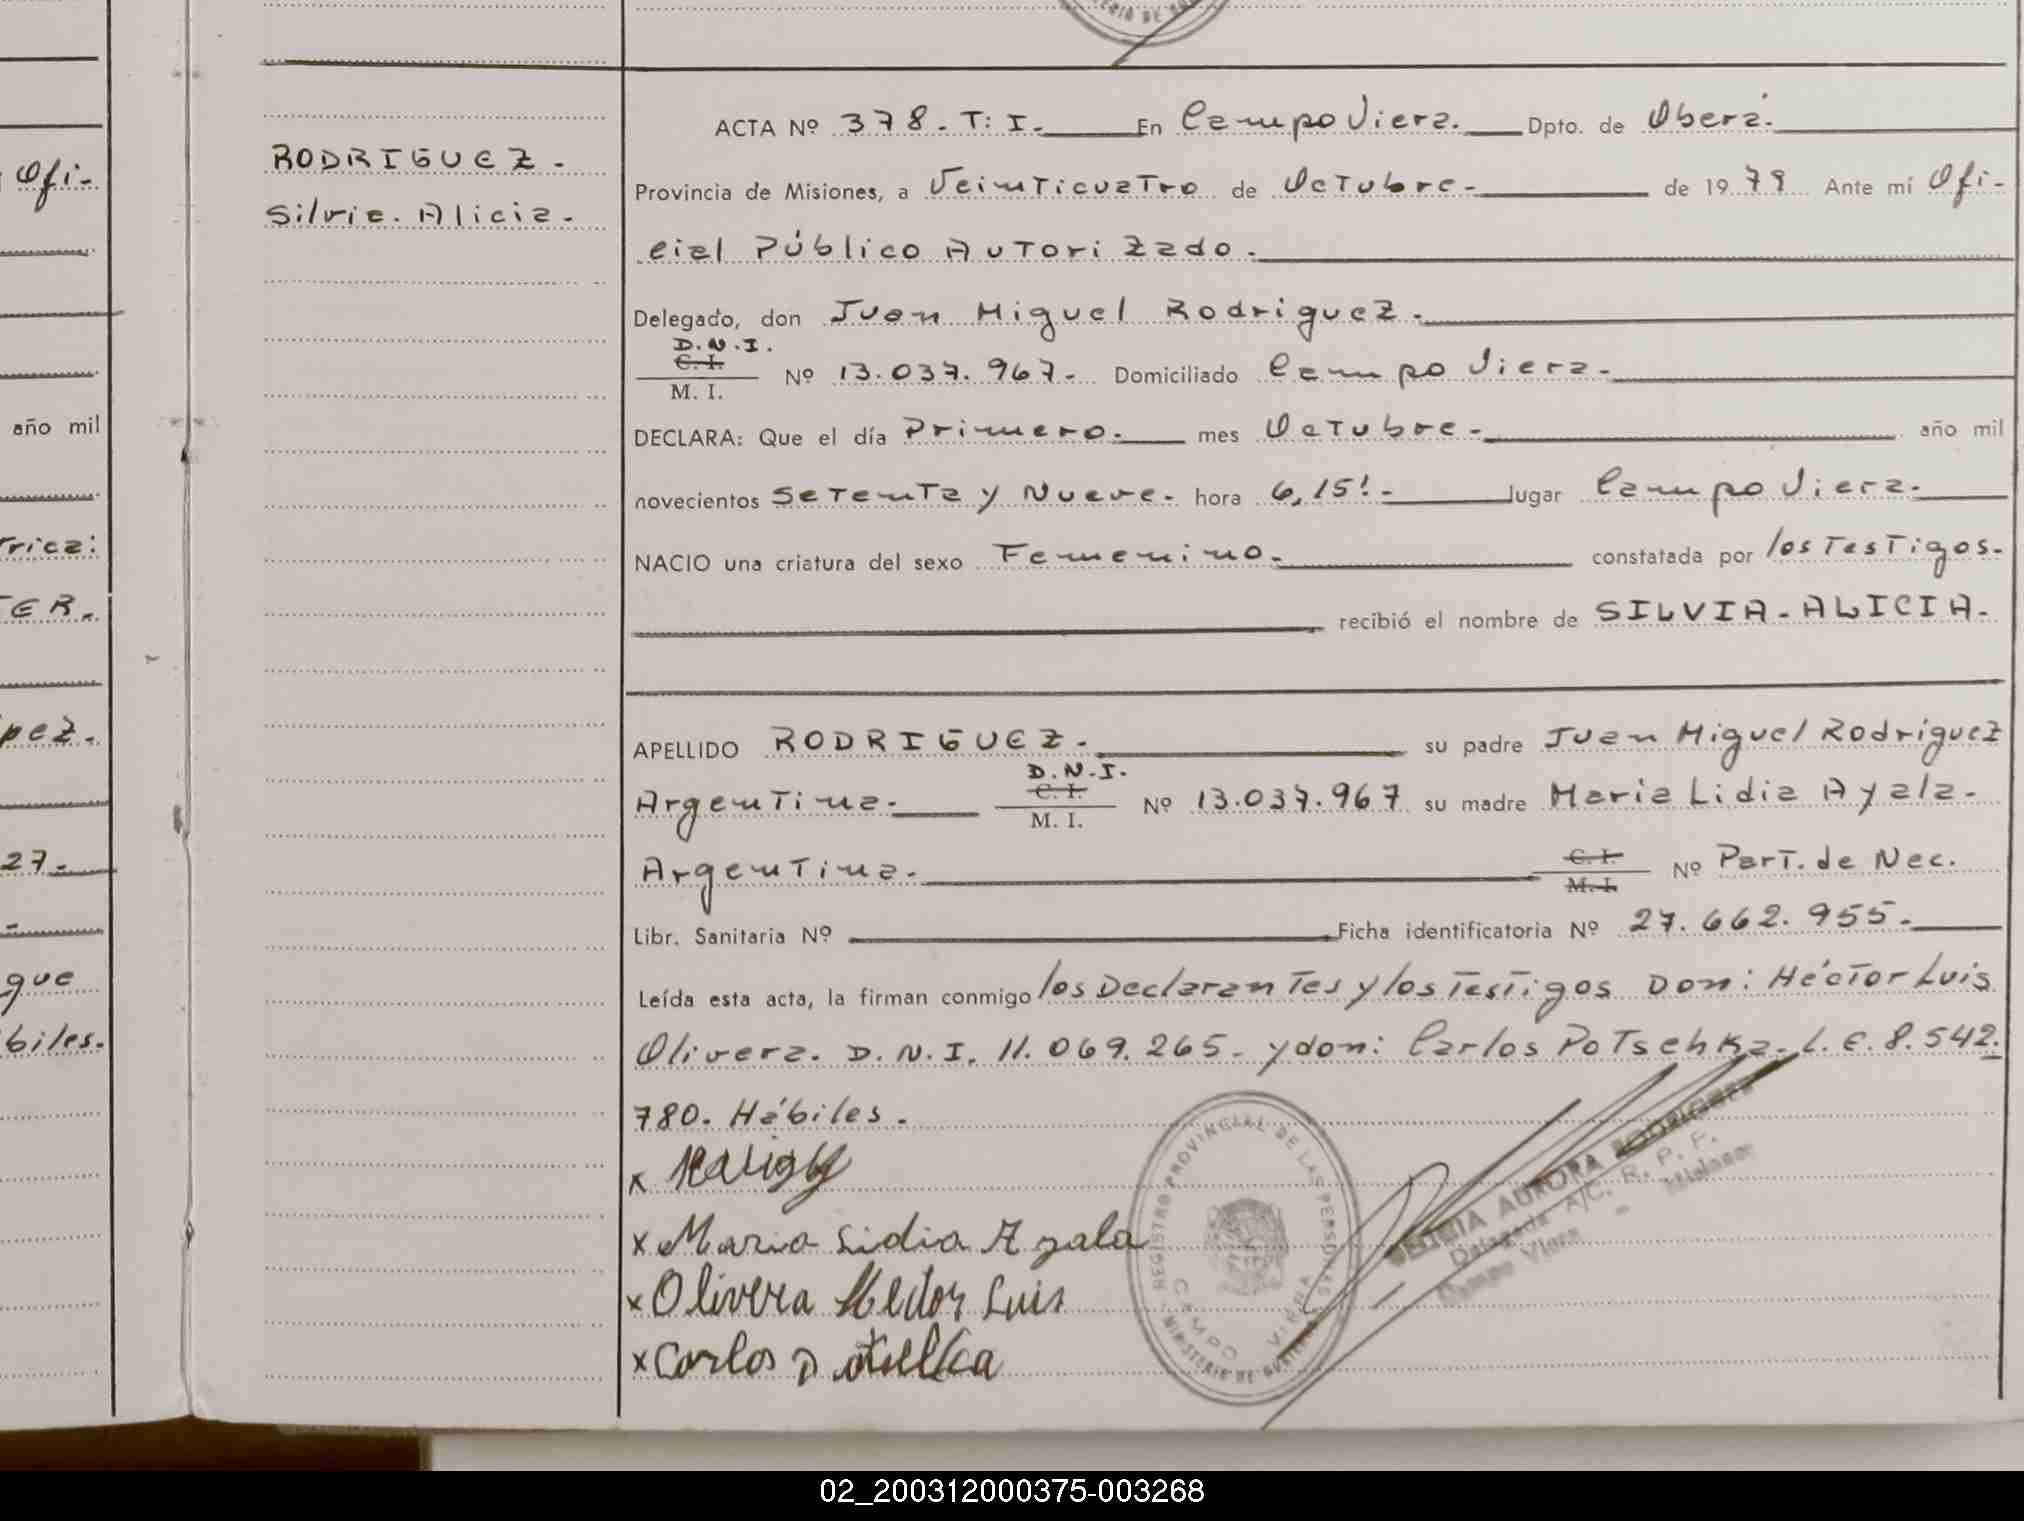 RODRIGUEZ.
Silvia. Alicia.
ACTA Nº 378. T: I. En Campo Viera. Dpto. de Oberá.
Provincia de Misiones, a Veinticuatro de Octubre. de 1979 Ante mí Ofi-
cial Público Autorizado.
Delegado, don Juan Miguel Rodriguez.
D.N.I.
C. I.
M. I.
Nº 13.037.967. Domiciliado Campo Viera.
DECLARA: Que el día Primero. mes Octubre. año mil
novecientos Setenta y Nueve. hora 6,15!. lugar Campo Viera.
NACIO una criatura del sexo Femenino. constatada por los Testigos.
recibió el nombre de SILVIA. ALICIA.
APELLIDO RODRIGUEZ. su padre Juan Miguel Rodriguez
D.N.I.
Argentina. C. I. M. I. Nº 13.037.967 su madre Maria Lidia Ayala.
Argentina. C. I. M. I. Nº Part. de Nac.
Libr. Sanitaria Nº Ficha identificatoria Nº 27.662.955.
Leída esta acta, la firman conmigo los Declarantes y los Testigos Don: Héctor Luis
Olivera. D.N.I. 11.069.265. y don: Carlos Potschka. L.E. 8.542.
780. Hábiles.
x Maria Lidia Ayala
x Olivera Hector Luis
x Carlos
REGISTRO PROVINCIAL DE LAS PERSONAS
CAMPO VIERA
AURORA RODRIGUEZ
Delegada A/C. R. P. P.
Campo Viera - Misiones
Ofi-
año mil
TER.
27.
que
02_200312000375-003268